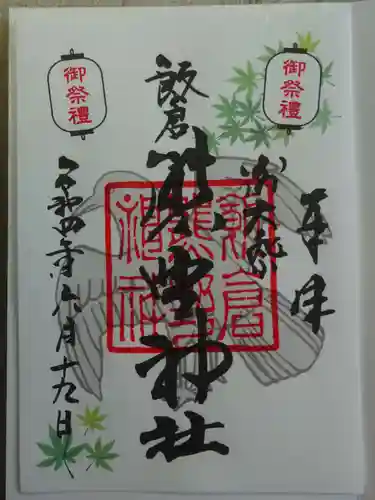 御祭禮
奉拝
飯倉
熊野神社
飯倉
熊野
神社
御祭禮
令和四年六月十九日